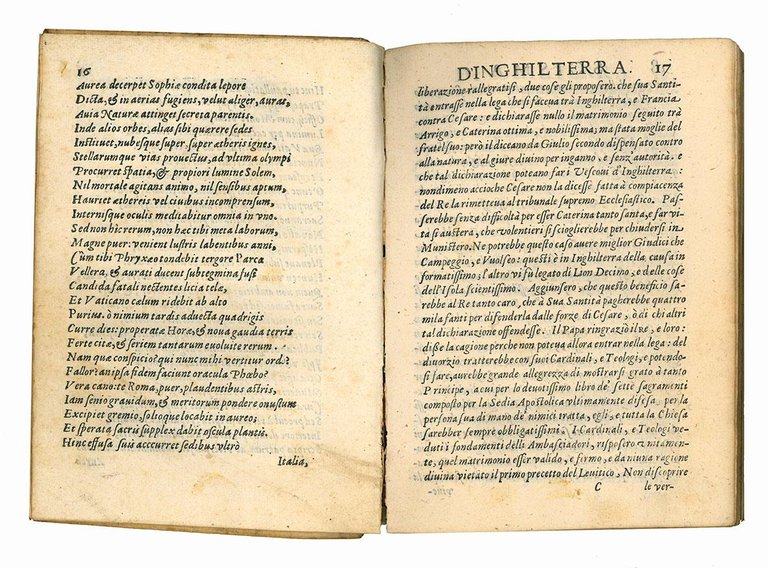 16
Aurea decerpet Sophiæ condita lepore
Dicta, & in aerias fugiens, velut aliger, auras,
Auia Naturæ attinget secreta parentis.
Inde alios orbes, alias sibi quærere sedes
Instituet, nubesque super, super ætheris ignes,
Stellarumque vias prouectus, ad vltima olympi
Procurret spatia, & propiori lumine Solem,
Nil mortale agitans animo, nil sensibus aptum,
Hauriet æthereis vel ciuibus incomprensum,
Internisque oculis meditabitur omnia in vno.
Sed non hic rerum, non hæc tibi meta laborum,
Magne puer: venient lustris labentibus anni,
Cùm tibi Phryxeo tondebit tergore Parca
Vellera, & aurati ducent subtegmina fusi
Candida fatali nectentes licia telæ,
Et Vaticano cælum ridebit ab alto
Purius. ò nimium tardis aduecta quadrigis
Curre dies: properate Horæ, & noua gaudia terris
Ferte citæ, & seriem tantarum euoluite rerum.
Nam quæ conspicio? qui nunc mihi vertitur ordo?
Fallor? an ipsa fidem faciunt oracula Phœbo?
Vera cano: te Roma, puer, plaudentibus astris,
Iam senio grauidum, & meritorum pondere onustum
Excipiet gremio, solioque locabit in aureo;
Et sperata sacris supplex dabit oscula plantis.
Hinc effusa suis acccurret sedibus vltrò
Italia,
D'INGHILTERRA. 17
liberazione rallegratisi, due cose gli proposero. che sua Santi-
tà entrasse nella lega che si faceua trà Inghilterra, e Francia
contra Cesare: e dichiarasse nullo il matrimonio seguito trà
Arrigo, e Caterina ottima, e nobilissima; ma stata moglie del
fratel suo: però il diceano da Giulio secondo dispensato contro
alla natura, e al giure diuino per inganno, e senz'autorità. e
che tal dichiarazione poteano far i Vescoui d'Inghilterra:
nondimeno accioche Cesare non la dicesse fatta à compiacenza
del Re la rimetteua al tribunale supremo Ecclesiastico. Pas-
serebbe senza difficoltà per esser Caterina tanto santa, e far vi-
ta sì austera, che volentieri si scioglierebbe per chiudersi in
Munistero. Ne potrebbe questo caso auere miglior Giudici che
Campeggio, e Vuolseo: questi è in Inghilterra della causa in
formatissimo; l'altro vi fu legato di Lion Decimo, e delle cose
dell'Isola scientissimo. Aggiunsero, che questo beneficio sa-
rebbe al Re tanto caro, che à Sua Santità pagherebbe quattro
mila fanti per difenderla dalle forze di Cesare, ò di chi altri
tal dichiarazione offendesse. Il Papa ringraziò il Re, e loro:
disse la cagione perche non poteua allora entrar nella lega: del
diuorzio tratterebbe con suoi Cardinali, e Teologi, e potendo-
si fare, aurebbe grande allegrezza di mostrarsi grato à tanto
Principe, a cui per lo deuotissimo libro de' sette sagramenti
composto per la Sedia Apostolica vltimamente difesa, per la
persona sua di mano de' nimici tratta, egli, e tutta la Chiesa
sarebber sempre obligatissimi. I Cardinali, e Teologi ve-
duti i fondamenti delli Ambasciadori, risposero vnitamen-
te, quel matrimonio esser valido, e fermo, e da niuna ragione
diuina vietato il primo precetto del Leuitico, Non discoprire
C le ver-